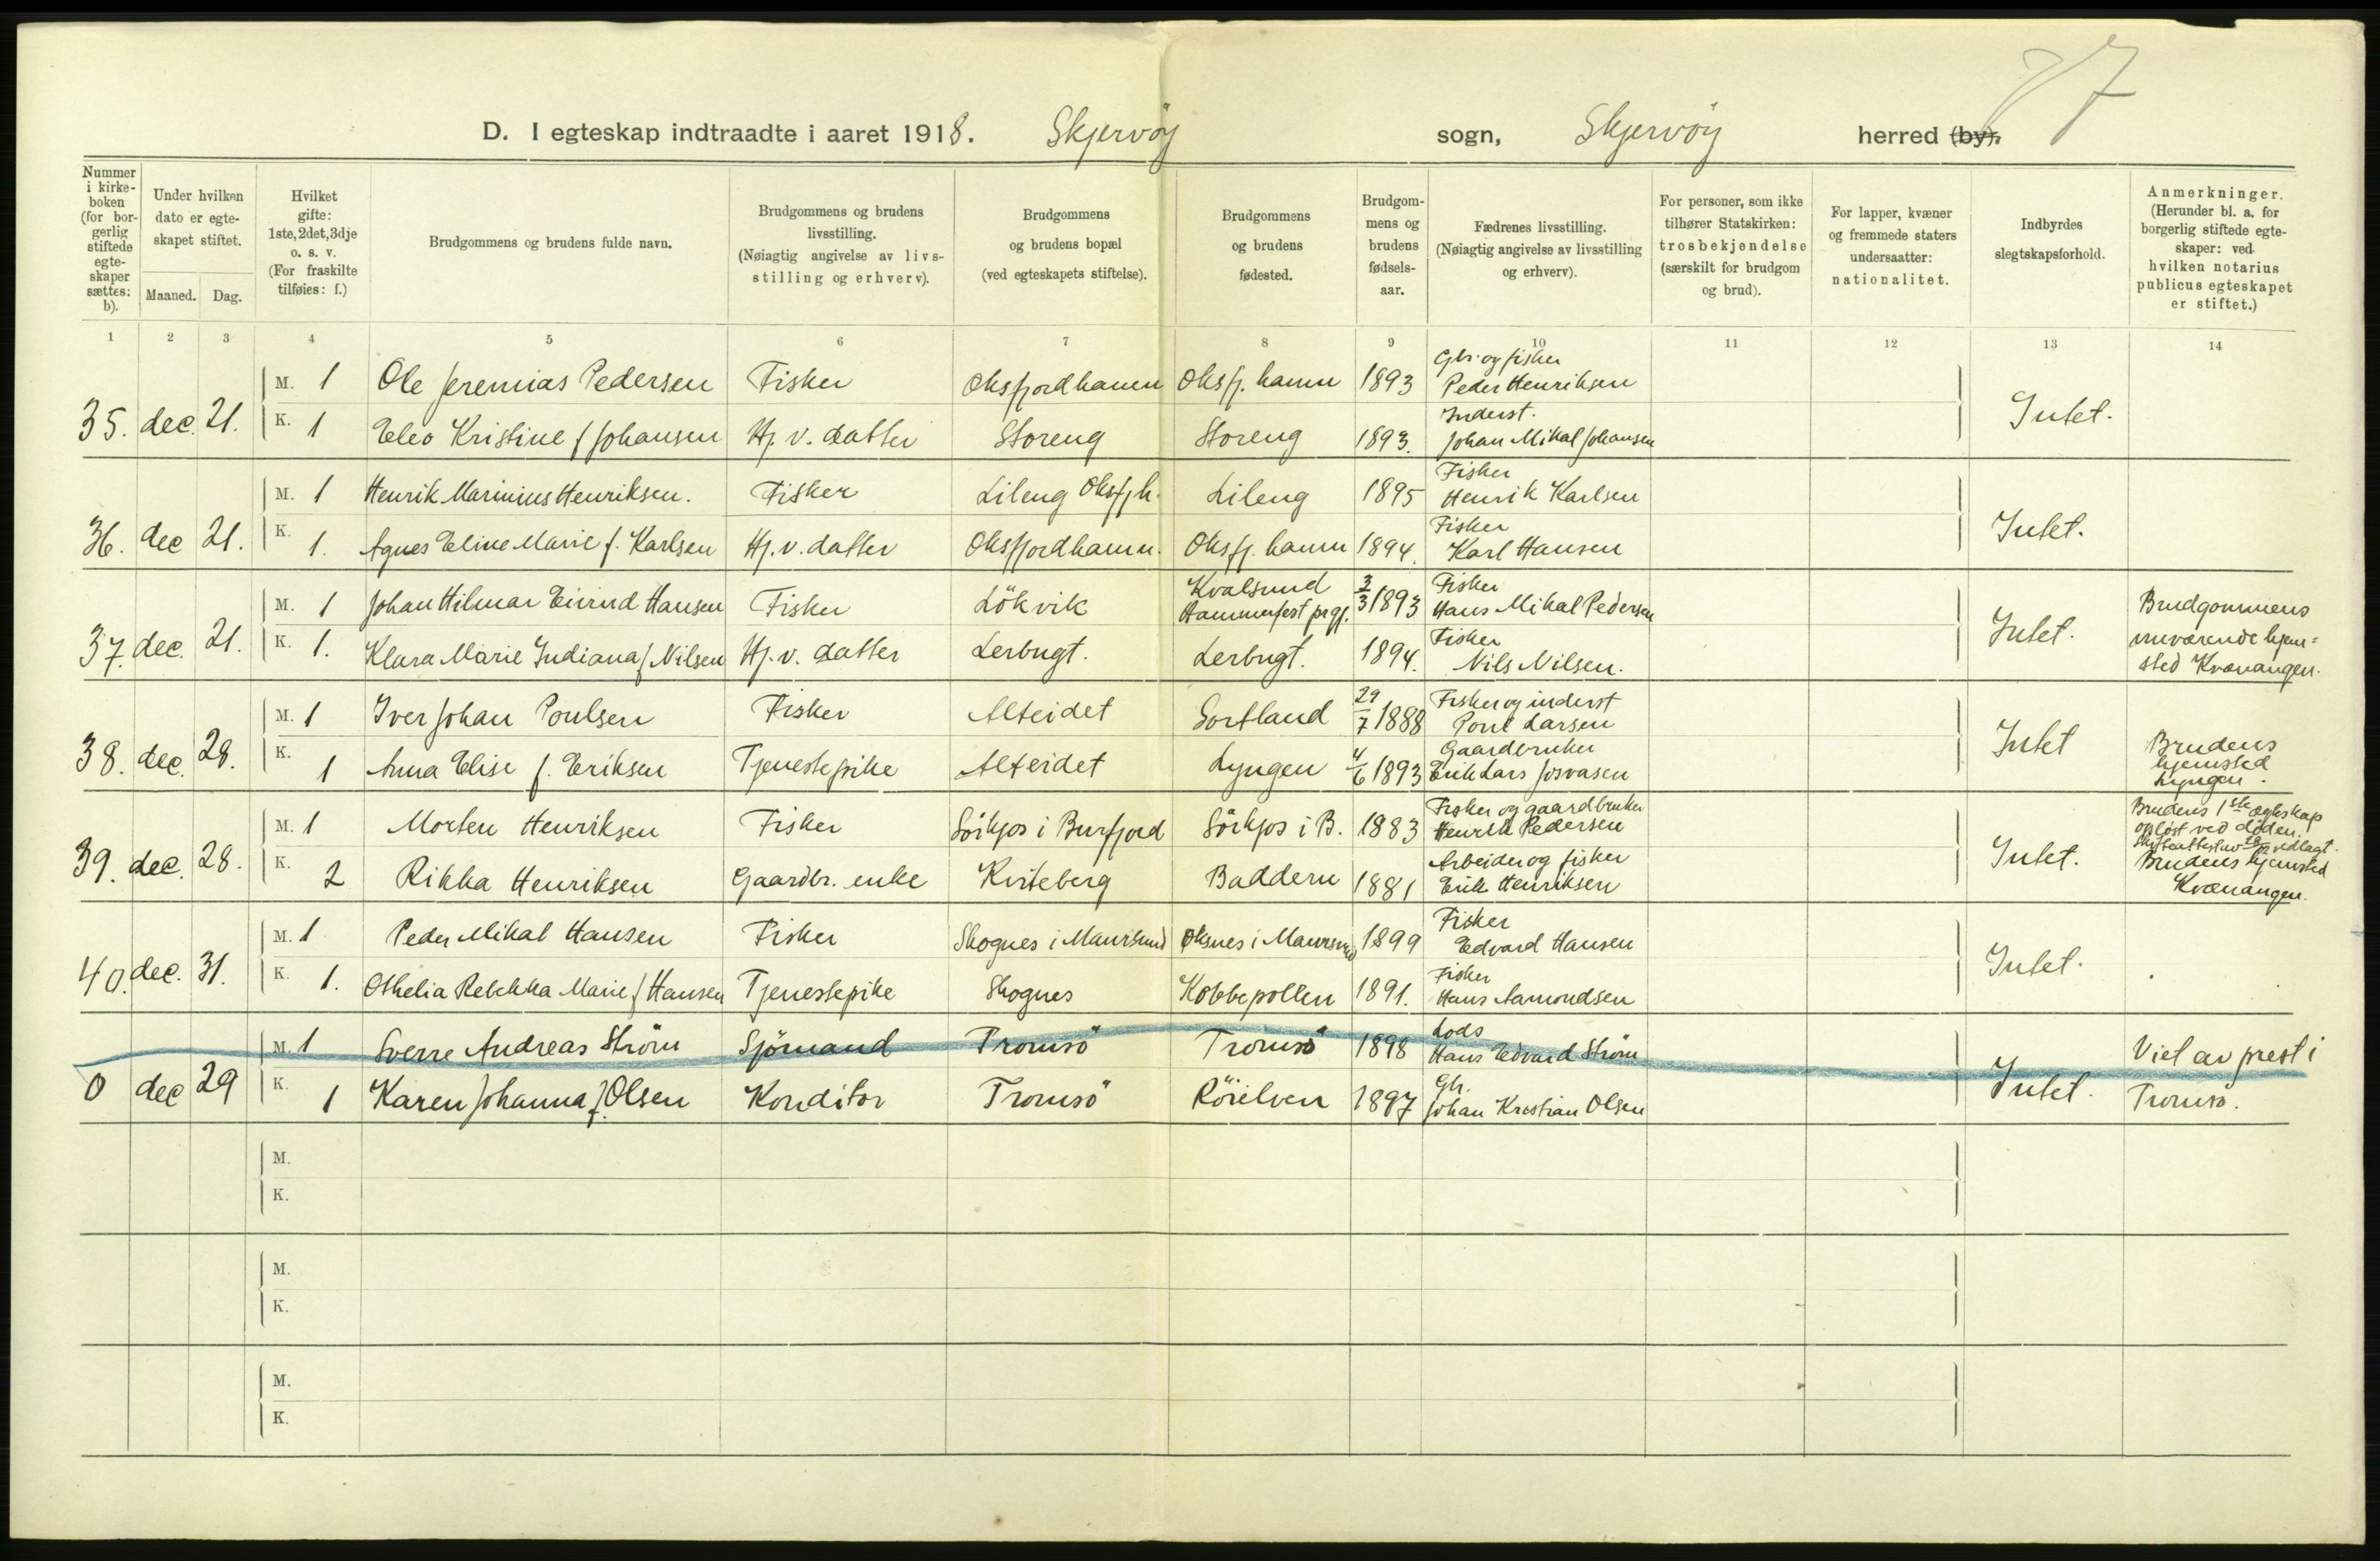 77
D. I egteskap indtraadte i aaret 1918. Skjervöy sogn, Skjervöy herred (by).
Nummer i kirke- boken (for bor- gerlig stiftede egte- skaper sættes: b).
Under hvilken dato er egte- skapet stiftet.
Maaned. Dag.
Hvilket gifte: 1ste, 2det, 3dje o. s. v. (For fraskilte tilføies: f.)
Brudgommens og brudens fulde navn.
Brudgommens og brudens livsstilling. (Nøiagtig angivelse av livs- stilling og erhverv).
Brudgommens og brudens bopæl (ved egteskapets stiftelse).
Brudgommens og brudens fødested.
Brudgom- mens og brudens fødsels- aar.
Fædrenes livsstilling. (Nøiagtig angivelse av livsstilling og erhverv).
For personer, som ikke tilhører Statskirken: trosbekjendelse (særskilt for brudgom og brud).
For lapper, kvæner og fremmede staters undersaatter: nationalitet.
Indbyrdes slegtskapsforhold.
Anmerkninger. (Herunder bl. a. for borgerlig stiftede egte- skaper: ved hvilken notarius publicus egteskapet er stiftet.)
1 2 3 4 5 6 7 8 9 10 11 12 13 14
35. dec. 21. M. 1 Ole Jeremias Pedersen Fisker Oksfjordhamn Oksfj. hamn 1893 Gbr. og fisker Peder Henriksen Intet.
K. 1 Eleo Kristine f Johansen Hj. v. datter Storeng Storeng 1893. Inderst. Johan Mikal Johansen
36. dec 21. M. 1 Henrik Marinius Henriksen. Fisker Lileng Oksfjh. Lileng 1895 Fisker Henrik Karlsen Intet.
K. 1. Agnes Eline Marie f. Karlsen Hj. v. datter Oksfjordhamn. Oksfj. hamn 1894. Fisker Karl Hansen
37. dec. 21. M. 1 Johan Hilmar Eivind Hansen Fisker Lökvik Kvalsund Hammerfest prgj. 3/3 1893 Fisker Hans Mikal Pedersen Intet. Brudgommens nuværende hjem= sted Kvænangen.
K. 1. Klara Marie Indiana f Nilsen Hj. v. datter Lerbugt. Lerbugt. 1894. Fisker Nils Nilsen.
38. dec. 28. M. 1 Iver Johan Poulsen Fisker Alteidet Sortland 29/7 1888 Fisker og inderst Poul Larsen Intet Brudens hjemsted Lyngen.
K. 1 Anna Elise f. Eriksen Tjenestepike Alteidet Lyngen 4/6 1893 Gaardbruker Erik Lars Josvasen
39. dec. 28. M. 1 Morten Henriksen Fisker Sörkjos i Burfjord Sörkjos i B. 1883 Fisker og gaardbruker Henrik Pedersen Intet. Brudens 1ste egteskap opløst ved döden. vedlagt. Brudens hjemsted Kvænangen.
K. 2 Rikka Henriksen Gaardbr. enke Kviteberg Baddern 1881 Arbeider og fisker Erik Henriksen
40. dec. 31. M. 1 Peder Mikal Hansen Fisker Skognes i Maursund Oksnes i Maursund 1899 Fisker Edvard Hansen Intet.
K. 1. Othelia Rebekka Marie f Hansen Tjenestepike Skognes Kobbepollen 1891. Fisker Hans Aamondsen
0 dec 29 M. 1 Sverre Andreas Ström Sjömand Tromsö Tromsö 1898 Lods Hans Edvard Ström Intet. Viet av prest i Tromsö.
K. 1 Karen Johanna f. Olsen Konditor Tromsö Röielven 1897 Gbr. Johan Kristian Olsen
M.
K.
M.
K.
M.
K.